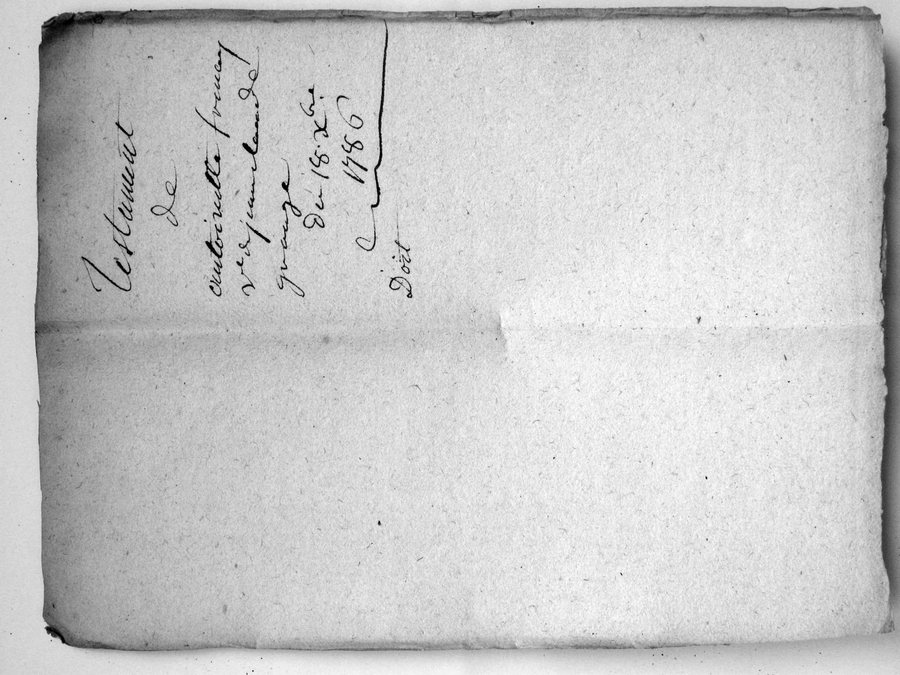 Testament
de
antoinette
ve de jean claude
grange
du 18. xbre
1786
Doit